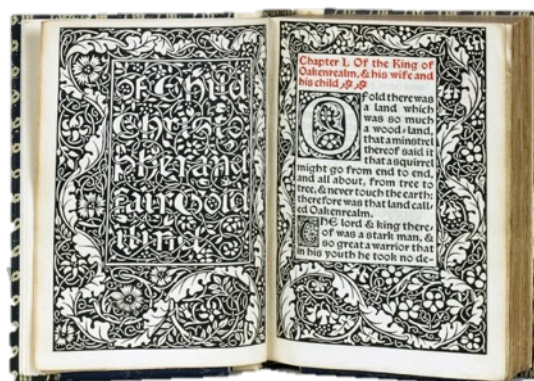 Of Child
Christo
pher and
fair Gold
ilind.
Chapter I. Of the King of
Oakenrealm, & his wife and
his child
Of old there was
a land which
was so much
a wood-land,
that a minstrel
thereof said it
that a squirrel
might go from end to end,
and all about, from tree to
tree, & never touch the earth:
therefore was that land call-
ed Oakenrealm.
The lord & king there-
of was a stark man, &
so great a warrior that
in his youth he took no de-